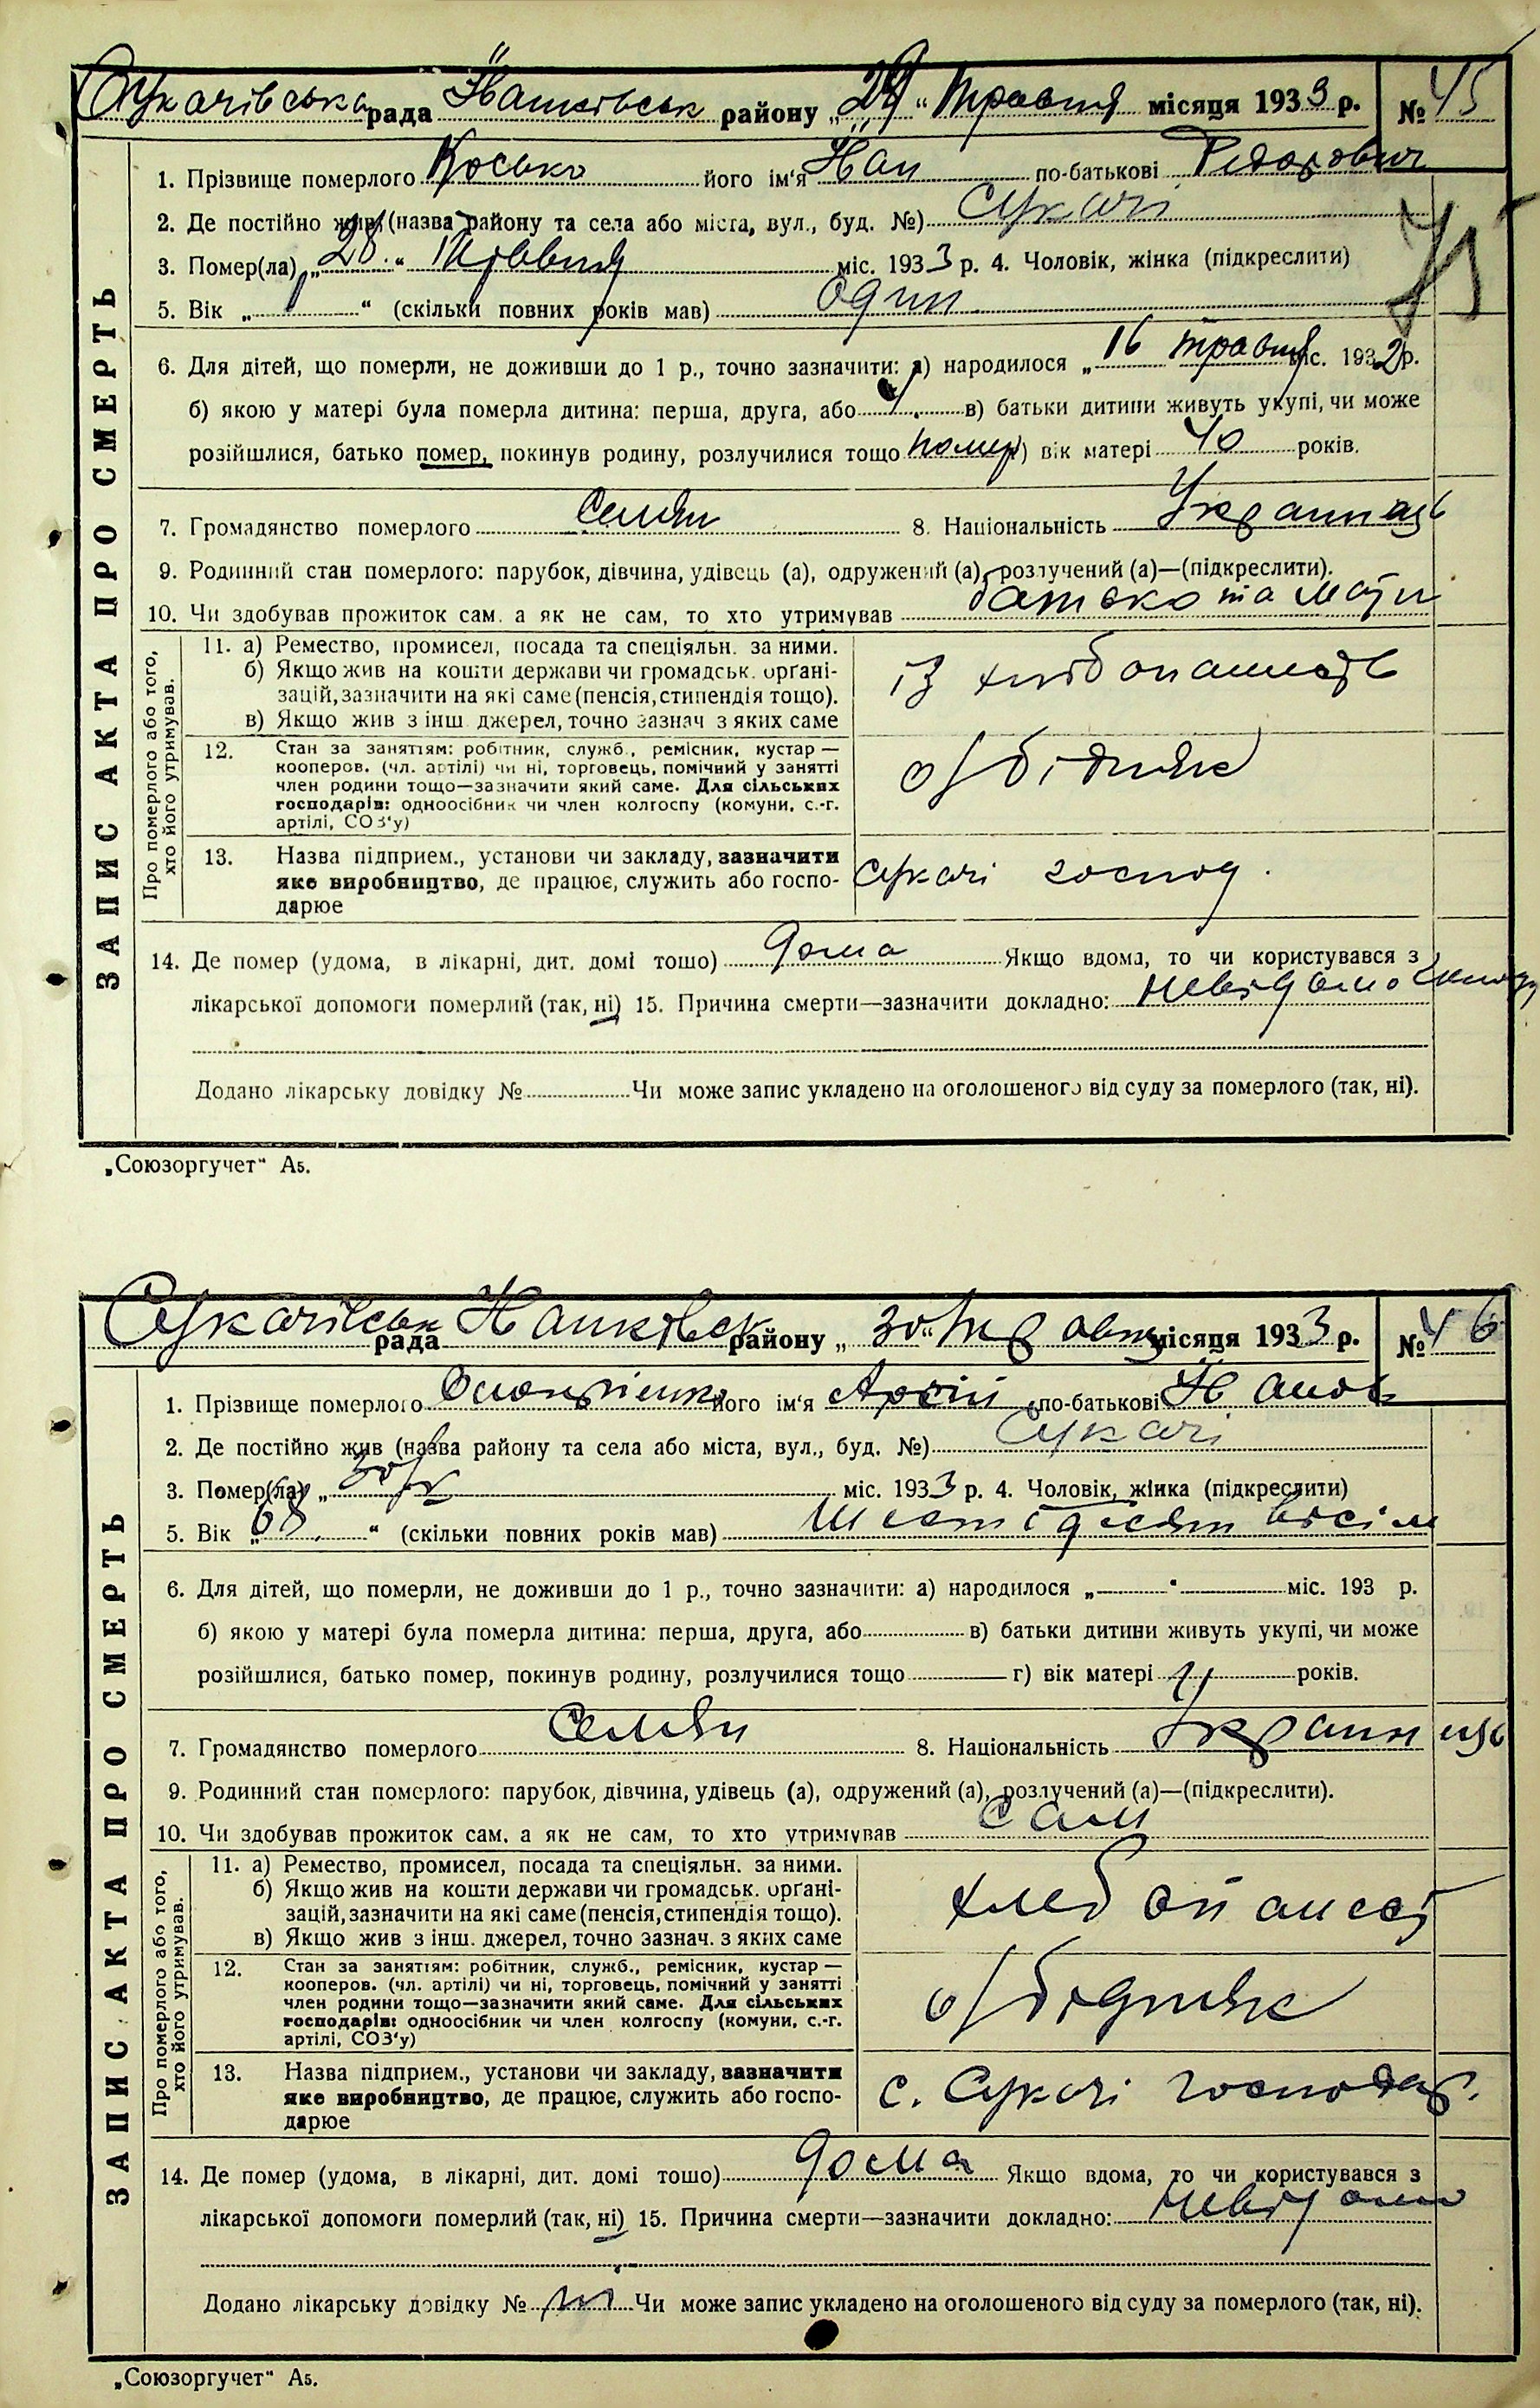 Сукачівська рада Іванківськ району „29“ травня місяця 1933 р. № 45
1. Прізвище померлого Косько його ім'я Іван по-батькові Федорович
2. Де постійно жив (назва району та села або міста, вул., буд. №) Сукачі
45
3. Помер(ла) „28“ міс. 1933 р. 4. Чоловік, жінка (підкреслити)
5. Вік „1“ (скільки повних років мав) один
6. Для дітей, що померли, не доживши до 1 р., точно зазначити: а) народилося „16 травня міс. 1932 р.
б) якою у матері була померла дитина: перша, друга, або в) батьки дитини живуть укупі, чи може
розійшлися, батько помер, покинув родину, розлучилися тощо помер г) вік матері 40 років.
7. Громадянство померлого Селян 8. Національність Украинець
9. Родинний стан померлого: парубок, дівчина, удівець (а), одружений (а), розлучений (а)—(підкреслити).
10. Чи здобував прожиток сам, а як не сам, то хто утримував батько та мати
ЗАПИС АКТА ПРО СМЕРТЬ
Про померлого або того, хто його утримував.
11. а) Ремество, промисел, посада та спеціяльн. за ними.
б) Якщо жив на кошти держави чи громадськ. орґані-
зацій, зазначити на які саме (пенсія, стипендія тощо).
в) Якщо жив з інш джерел, точно зазнач з яких саме
із
12. Стан за заняттям: робітник, служб., ремісник, кустар —
кооперов. (чл. артілі) чи ні, торговець, помічний у занятті
член родини тощо—зазначити який саме. Для сільських
господарів: одноосібник чи член колгоспу (комуни, с.-г.
артілі, СОЗ'у)
о/бідняк
13. Назва підприєм., установи чи закладу, зазначити
яке виробництво, де працює, служить або госпо-
дарює
Сукачі господ.
14. Де помер (удома, в лікарні, дит. домі тощо) дома Якщо вдома, то чи користувався з
лікарської допомоги померлий (так, ні) 15. Причина смерти—зазначити докладно: невідомо
Додано лікарську довідку № Чи може запис укладено на оголошеного від суду за померлого (так, ні).
„Союзоргучет“ А5.
Сукачівськ рада Іванківськ району „30“ травня місяця 1933 р. № 46
1. Прізвище померлого його ім'я по-батькові Іванов
2. Де постійно жив (назва району та села або міста, вул., буд. №) Сукачі
3. Помер(ла) „30/V міс. 1933 р. 4. Чоловік, жінка (підкреслити)
5. Вік „68“ (скільки повних років мав) Шестідесят вісім
6. Для дітей, що померли, не доживши до 1 р., точно зазначити: а) народилося „ “ міс. 193 р.
б) якою у матері була померла дитина: перша, друга, або в) батьки дитини живуть укупі, чи може
розійшлися, батько помер, покинув родину, розлучилися тощо г) вік матері років.
7. Громадянство померлого Селян 8. Національність Украинець
9. Родинний стан померлого: парубок, дівчина, удівець (а), одружений (а), розлучений (а)—(підкреслити).
10. Чи здобував прожиток сам, а як не сам, то хто утримував сам
ЗАПИС АКТА ПРО СМЕРТЬ
Про померлого або того, хто його утримував.
11. а) Ремество, промисел, посада та спеціяльн. за ними.
б) Якщо жив на кошти держави чи громадськ. орґані-
зацій, зазначити на які саме (пенсія, стипендія тощо).
в) Якщо жив з інш. джерел, точно зазнач. з яких саме
12. Стан за заняттям: робітник, служб., ремісник, кустар —
кооперов. (чл. артілі) чи ні, торговець, помічний у занятті
член родини тощо—зазначити який саме. Для сільських
господарів: одноосібник чи член колгоспу (комуни, с.-г.
артілі, СОЗ'у)
о/бідняк
13. Назва підприєм., установи чи закладу, зазначити
яке виробництво, де працює, служить або госпо-
дарює
с. Сукачі господар.
14. Де помер (удома, в лікарні, дит. домі тощо) дома Якщо вдома, то чи користувався з
лікарської допомоги померлий (так, ні) 15. Причина смерти—зазначити докладно: невідомо
Додано лікарську довідку № ні Чи може запис укладено на оголошеного від суду за померлого (так, ні).
„Союзоргучет“ А5.